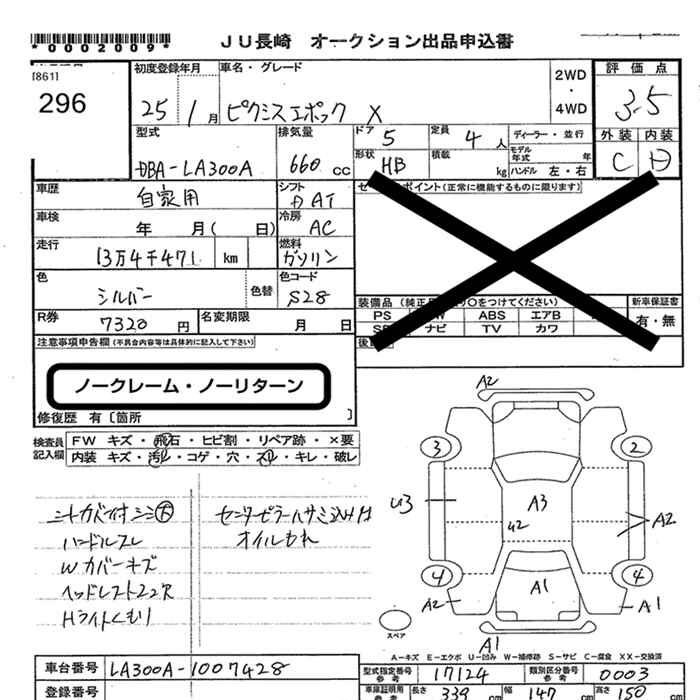 *0002009*
JU長崎 オークション出品申込書
[861]
296
初度登録年月
車名・グレード
25 1月
ピクシスエポック X
2WD
・
4WD
評価点
3.5
外装 内装
C D
型式
DBA-LA300A
排気量
660 cc
ドア 5
定員 4 人
ディーラー・並行
形状 HB
積載 kg
モデル年式 年
ハンドル 左・右
車歴 自家用
シフト FAT
車検 年 月( 日)
冷房 AC
走行 13万4千471 km
燃料 ガソリン
色 シルバー
色替
色コード S28
R券 7320 円
名変期限 月 日
ポイント(正常に機能するものに限ります)
装備品(純正品 ○をつけてください)
新車保証書
PS ABS エアB
有・無
ナビ TV カワ
注意事項申告欄(不具合内容等は具体的に記入して下さい)
ノークレーム・ノーリターン
修復歴 有〔箇所 〕
検査員記入欄
FW キズ・飛石・ヒビ割・リペア跡・×要
内装 キズ・汚レ・コゲ・穴・スレ・キレ・破レ
ハンドルスレ
Wカバーキズ
Hライトくもり
オイルもれ
A2
3 2
U3
A3
U2
A2
4 4
A2
A1
A1
A1
スペア
A-キズ E-エクボ U-凹み W-補修跡 S-サビ C-腐食 XX-交換済
車台番号 LA300A-1007428
登録番号
型式指定番号 参考 17124
類別区分番号 参考 0003
車庫証明用 参考 長さ 339 cm 幅 147 cm 高さ 150 cm